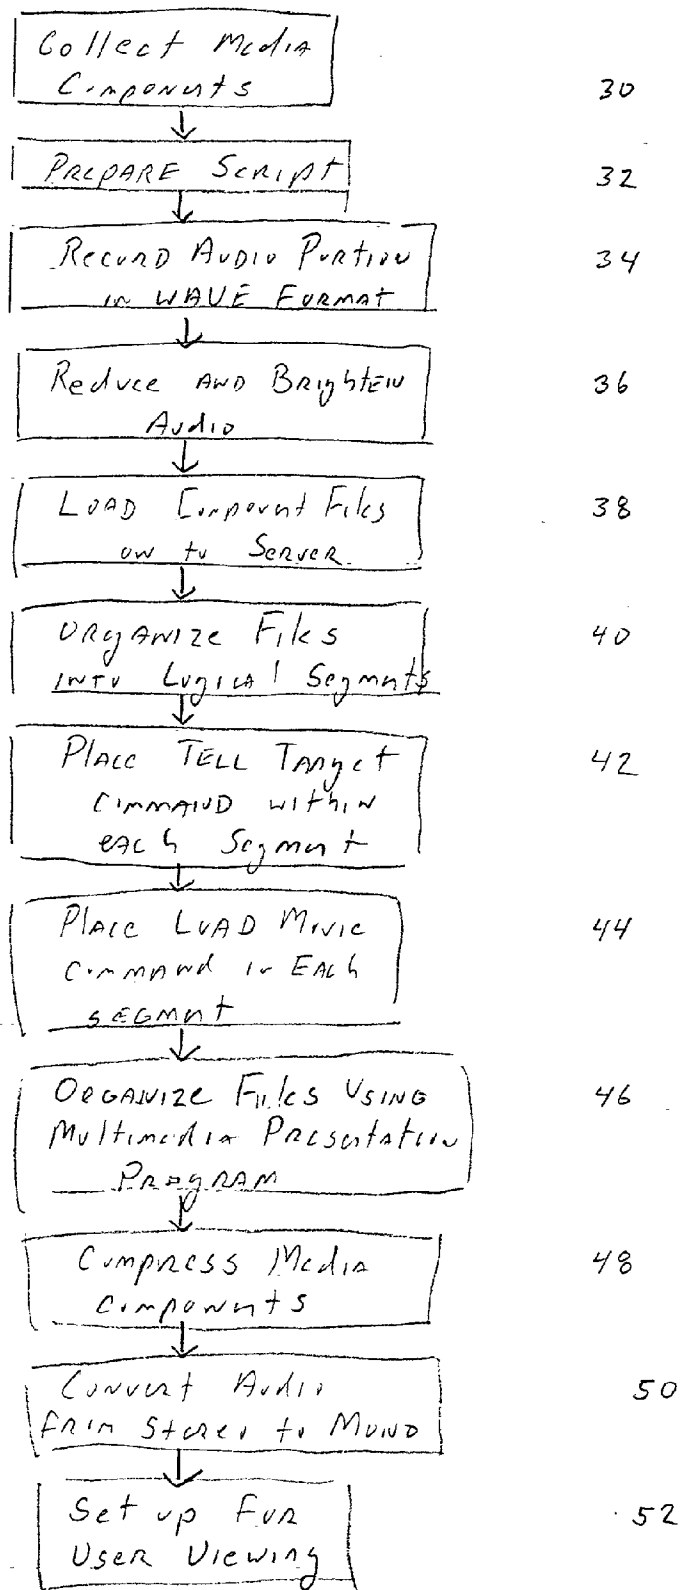 Collect Media
Components
30
PREPARE Script
32
RECORD AUDIO PORTION
in WAVE FORMAT
34
Reduce AND BrightEN
Audio
36
LOAD Component Files
on to Server
38
ORgANIZE Files
INTO LogicAl Segments
40
PlAce TELL TARget
COMMAND within
eACh Segment
42
PlAce LOAD Movie
CommAnd in EACh
SEGMent
44
ORGANIZE Files USING
MultimediA PResentAtion
PROgRAM
46
CompRess MediA
Components
48
Convert Audio
from Stereo to MONO
50
Set up FOR
USER Viewing
52